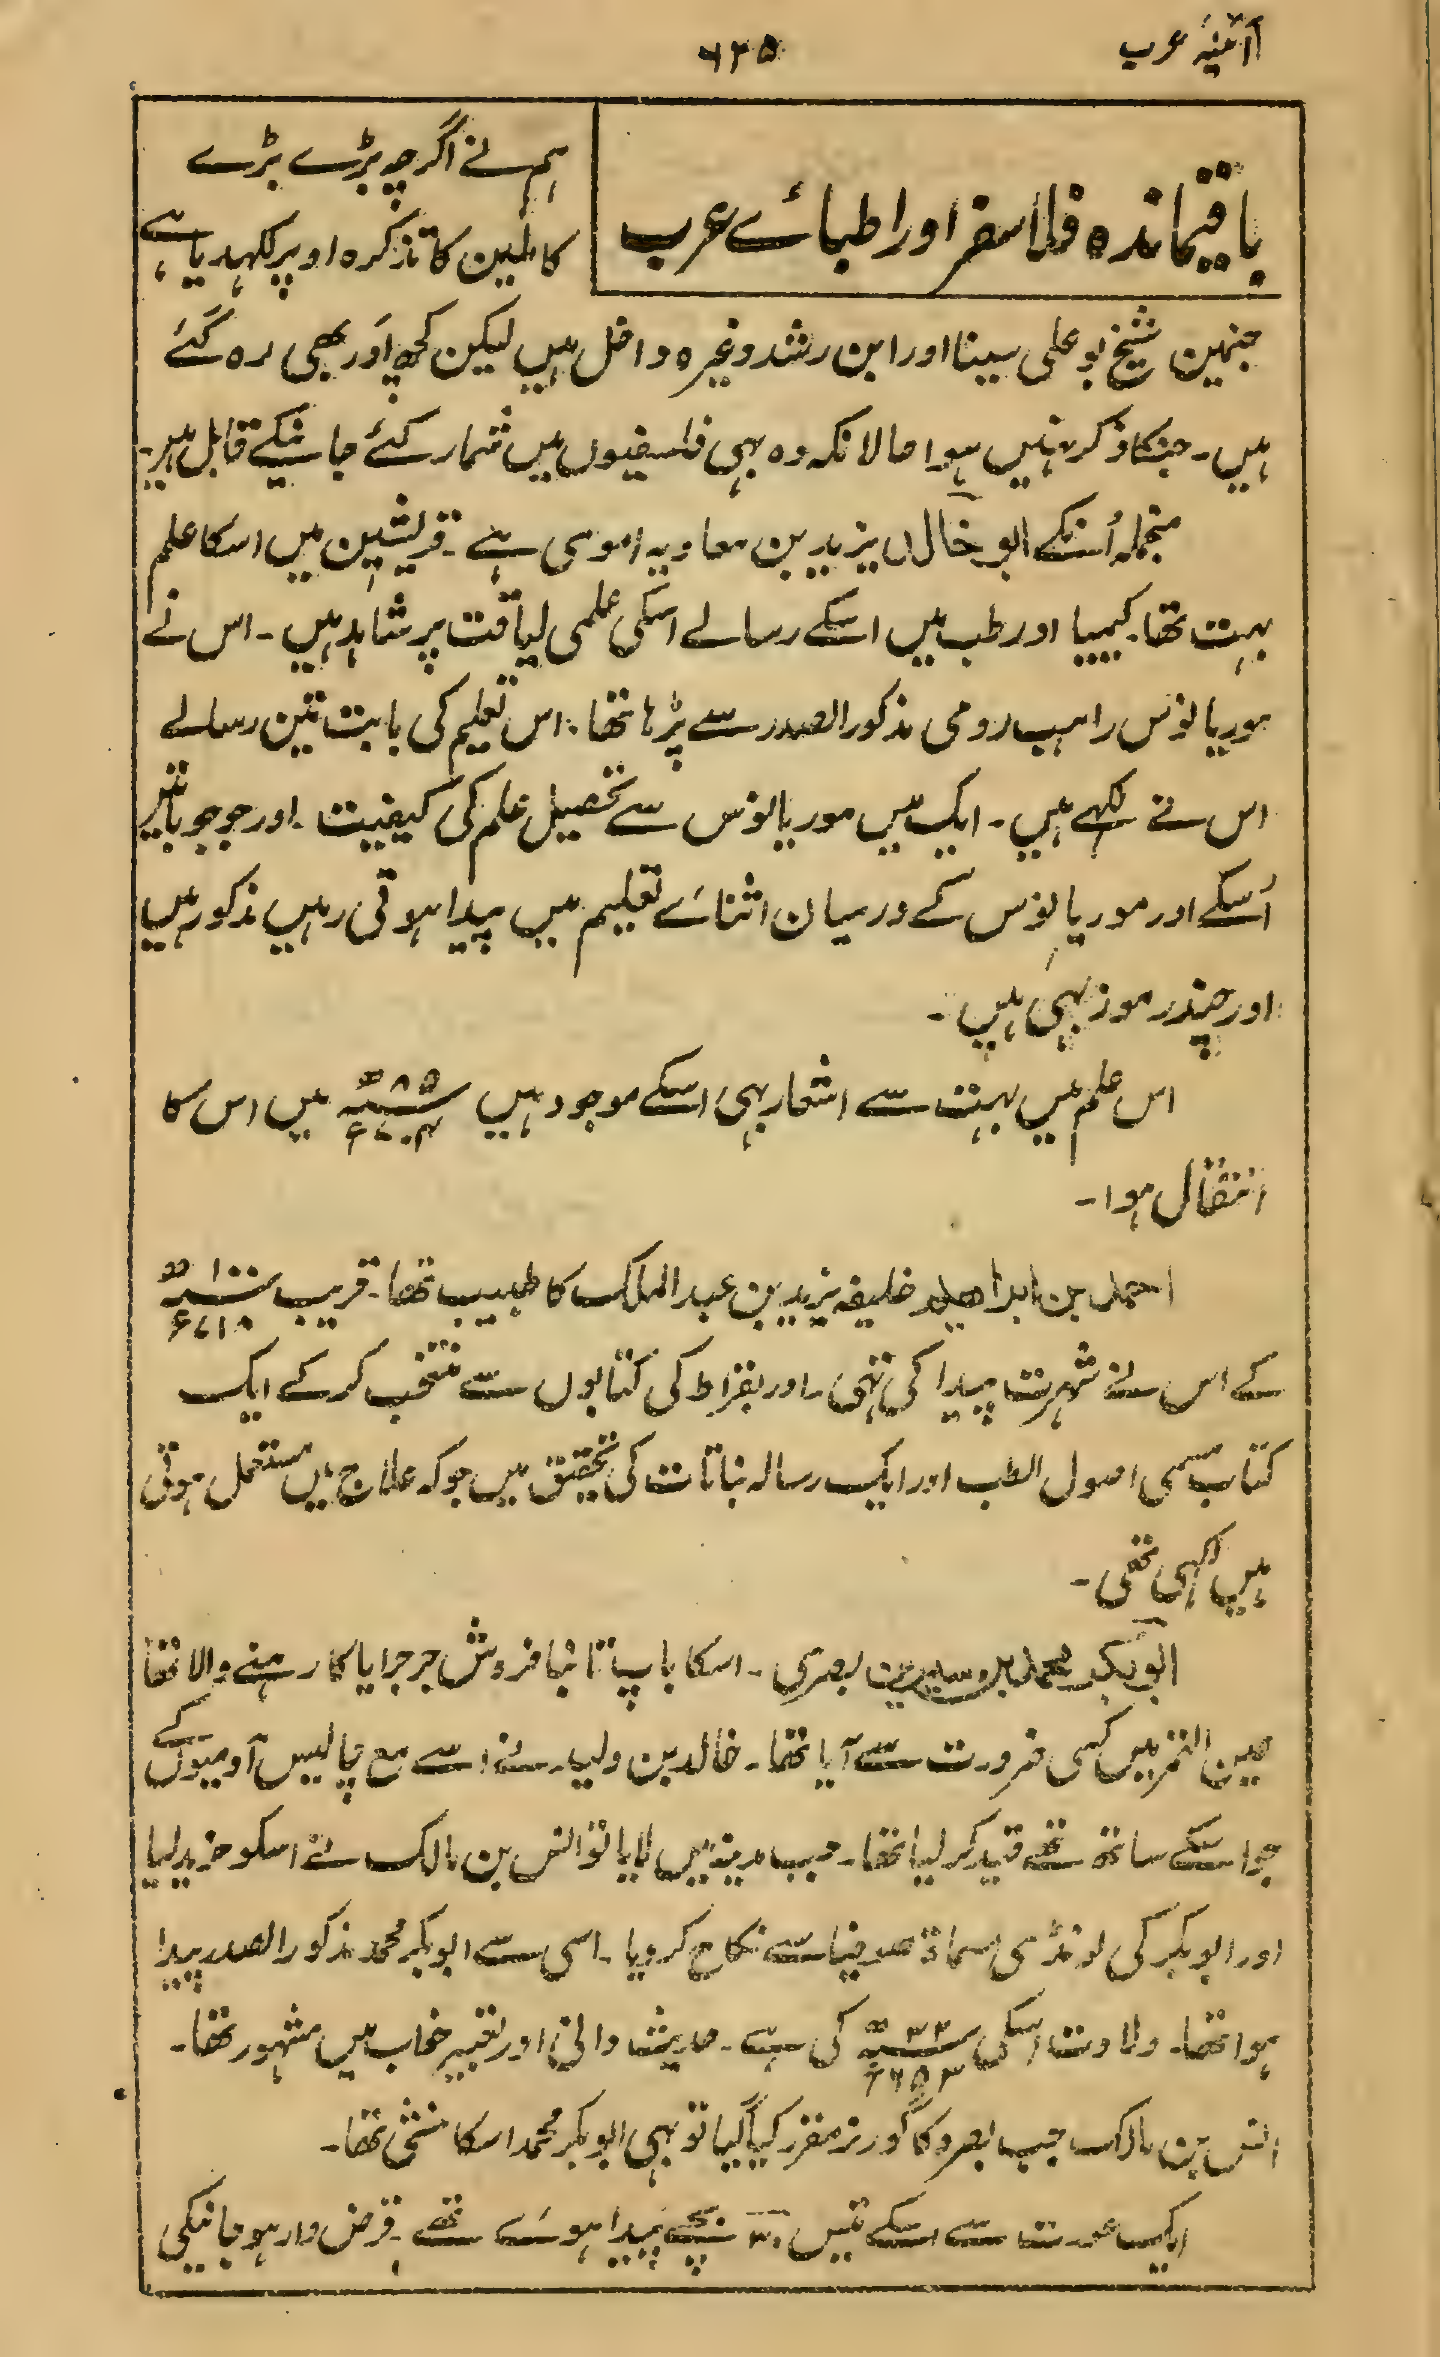 آئینۂ عرب
۶۲۵
باقیماندہ فلاسفر اور اطبائے عرب
ہم نے اگرچہ بڑے بڑے
کاملین کا تذکرہ اوپر لکہدیا ہے
جنہین شیخ بو علی سینا اور ابن رشد وغیرہ داخل ہیں لیکن کچھ اَور بھی رہ گئے
ہیں۔ جنکا ذکر نہیں ہوا حالانکہ وہ بہی فلسفیوں میں شمار کئے جانیکے قابل ہیں۔
منجملہ اُنکے ابو خالد یزید بن معاویہ اموی ہے۔ قریشیین میں اسکا علم
بہت تھا۔ کیمیا اور طب میں اسکے رسالے اسکی علمی لیاقت پر شاہد ہیں۔ اس نے
موریانوس راہب رومی مذکور الصدر سے پڑہا تھا۔ اس تعلیم کی بابت تین رسالے
اس نے لکہے ہیں۔ ایک میں موریانوس سے تحصیل علم کی کیفیت۔ اور جو جو باتیں
اُسکے اور موریانوس کے درمیان اثنائے تعلیم میں پیدا ہوتی رہیں مذکور ہیں
اور چند رموز بہی ہیں۔
اس علم میں بہت سے اشعار بہی اسکے موجود ہیں ۸۵ھ ۷۰۴ء میں اس کا
انتقال ہوا۔
احمد بن ابراھیم خلیفہ یزید بن عبدالملک کا طبیب تھا۔ قریب ۱۰۰ھ ۷۱۸ء
کے اس نے شہرت پیدا کی تہی۔ اور بقراط کی کتابوں سے منتخب کرکے ایک
کتاب مسمی اصول الطب اور ایک رسالہ نباتات کی تحقیق میں جو کہ علاج میں مستعمل ہوتی
ہیں لکہی تھی۔
ابوبکر محمد بن سیرین بصری۔ اسکا باپ تانبا فروش جرجرایا کا رہنے والا تھا
عین التمر میں کسی ضرورت سے آیا تھا۔ خالد بن ولید نے اسے مع چالیس آدمیوں کے
جو اسکے ساتھ تھے قید کر لیا تھا۔ جب مدینہ میں لایا تو انس بن مالک نے اسکو خرید لیا
اور ابوبکر کی لونڈی مسماۃ صفیا سے نکاح کر دیا۔ اسی سے ابوبکر محمد مذکور الصدر پیدا
ہوا تھا۔ ولادت اسکی ۳۳ھ ۶۵۳ء کی ہے۔ حدیث دانی اور تعبیر خواب میں مشہور تھا۔
انس بن مالک جب بصرہ کا گورنر مقرر کیا گیا تو بہی ابوبکر محمد اسکا منشی تھا۔
ایک عورت سے اسکے تیس ۳۰ بچے پیدا ہوئے تھے۔ قرض دار ہو جانیکی